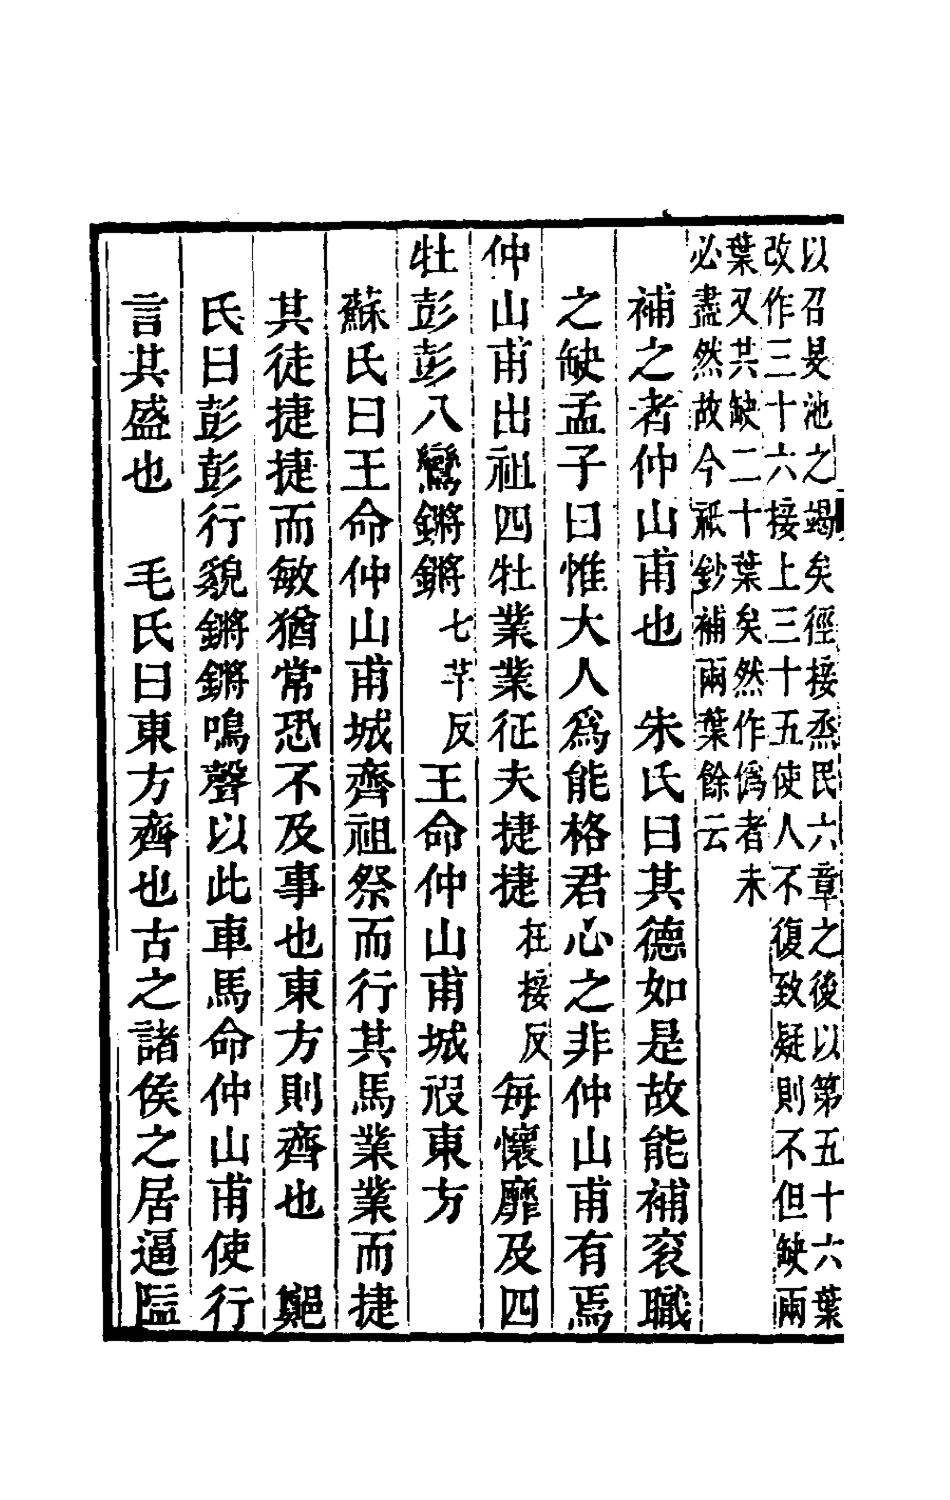 以召旻池之竭矣徑接烝民六章之後以第五十六葉
改作三十六接上三十五使人不復致疑則不但缺兩
葉又共缺二十葉矣然作僞者未
必盡然故今祇鈔補兩葉餘云
補之者仲山甫也　朱氏曰其德如是故能補衮職
之缺孟子曰惟大人爲能格君心之非仲山甫有焉
仲山甫出祖四牡業業征夫捷捷在接反每懷靡及四
牡彭彭八鸞鏘鏘七芊反王命仲山甫城彼東方
蘇氏曰王命仲山甫城齊祖祭而行其馬業業而捷
其徒捷捷而敏猶常恐不及事也東方則齊也　鄭
氏曰彭彭行貌鏘鏘鳴聲以此車馬命仲山甫使行
言其盛也　毛氏曰東方齊也古之諸侯之居逼隘